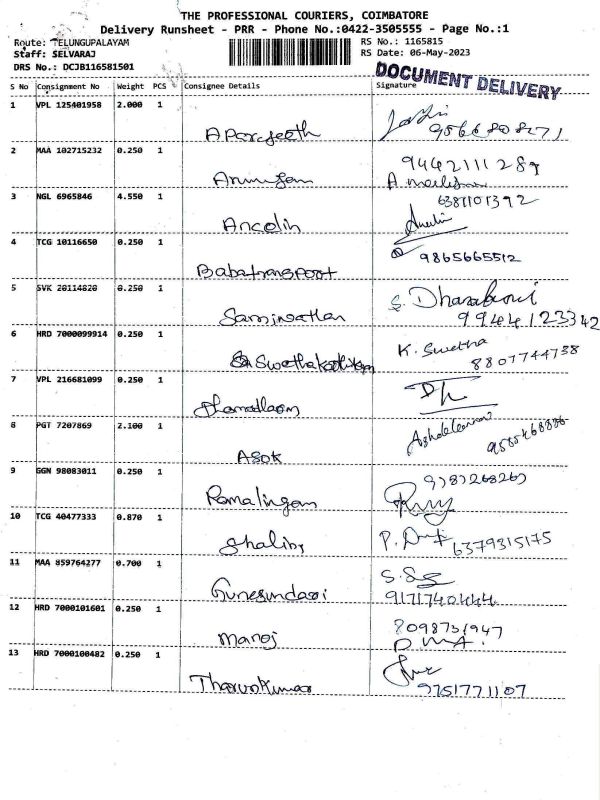 THE PROFESSIONAL COURIERS, COIMBATORE
Delivery Runsheet - PRR - Phone No.:0422-3505555 - Page No.:1
Route: TELUNGUPALAYAM
Staff: SELVARAJ
DRS No.: DCJB116581501
RS No.: 1165815
RS Date: 06-May-2023
DOCUMENT DELIVERY
S No Consignment No Weight PCS Consignee Details Signature
1 VPL 125401958 2.000 1
2 MAA 102715232 0.250 1
9442111289
Arumugam
3 NGL 6965846 4.550 1
6381101392
Ancolin
4 TCG 10116650 0.250 1
9865665512
Babatransport
5 SVK 20114820 0.250 1
9944123342
6 HRD 7000099914 0.250 1
K. Swetha
8807744738
7 VPL 216681099 0.250 1
8 PGT 7207869 2.100 1
Asok
9 GGN 98083011 0.250 1
Ramalingam
10 TCG 40477333 0.870 1
6379315175
11 MAA 859764277 0.700 1
9171740444
12 HRD 7000101601 0.250 1
8098731947
Manoj
13 HRD 7000100482 0.250 1
Tharunkumar
9751771107